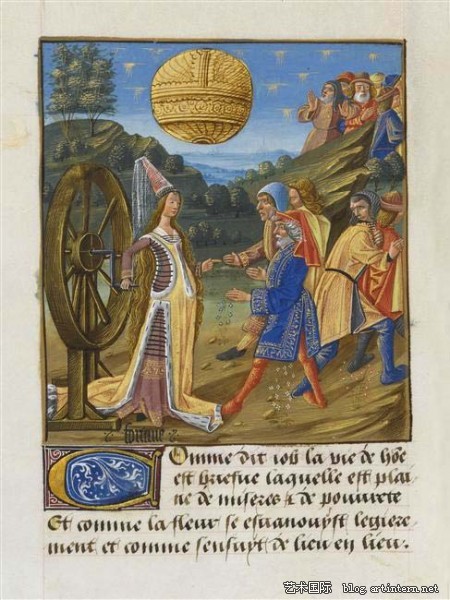 fortune
Comme dit iob la vie de hōe
est briefue laquelle est plai
ne de miseres & de pouurete
Et comme la fleur se esuanouyst legiere
ment et comme sensuyt de lieu en lieu.
艺术国际 blog.artintern.net